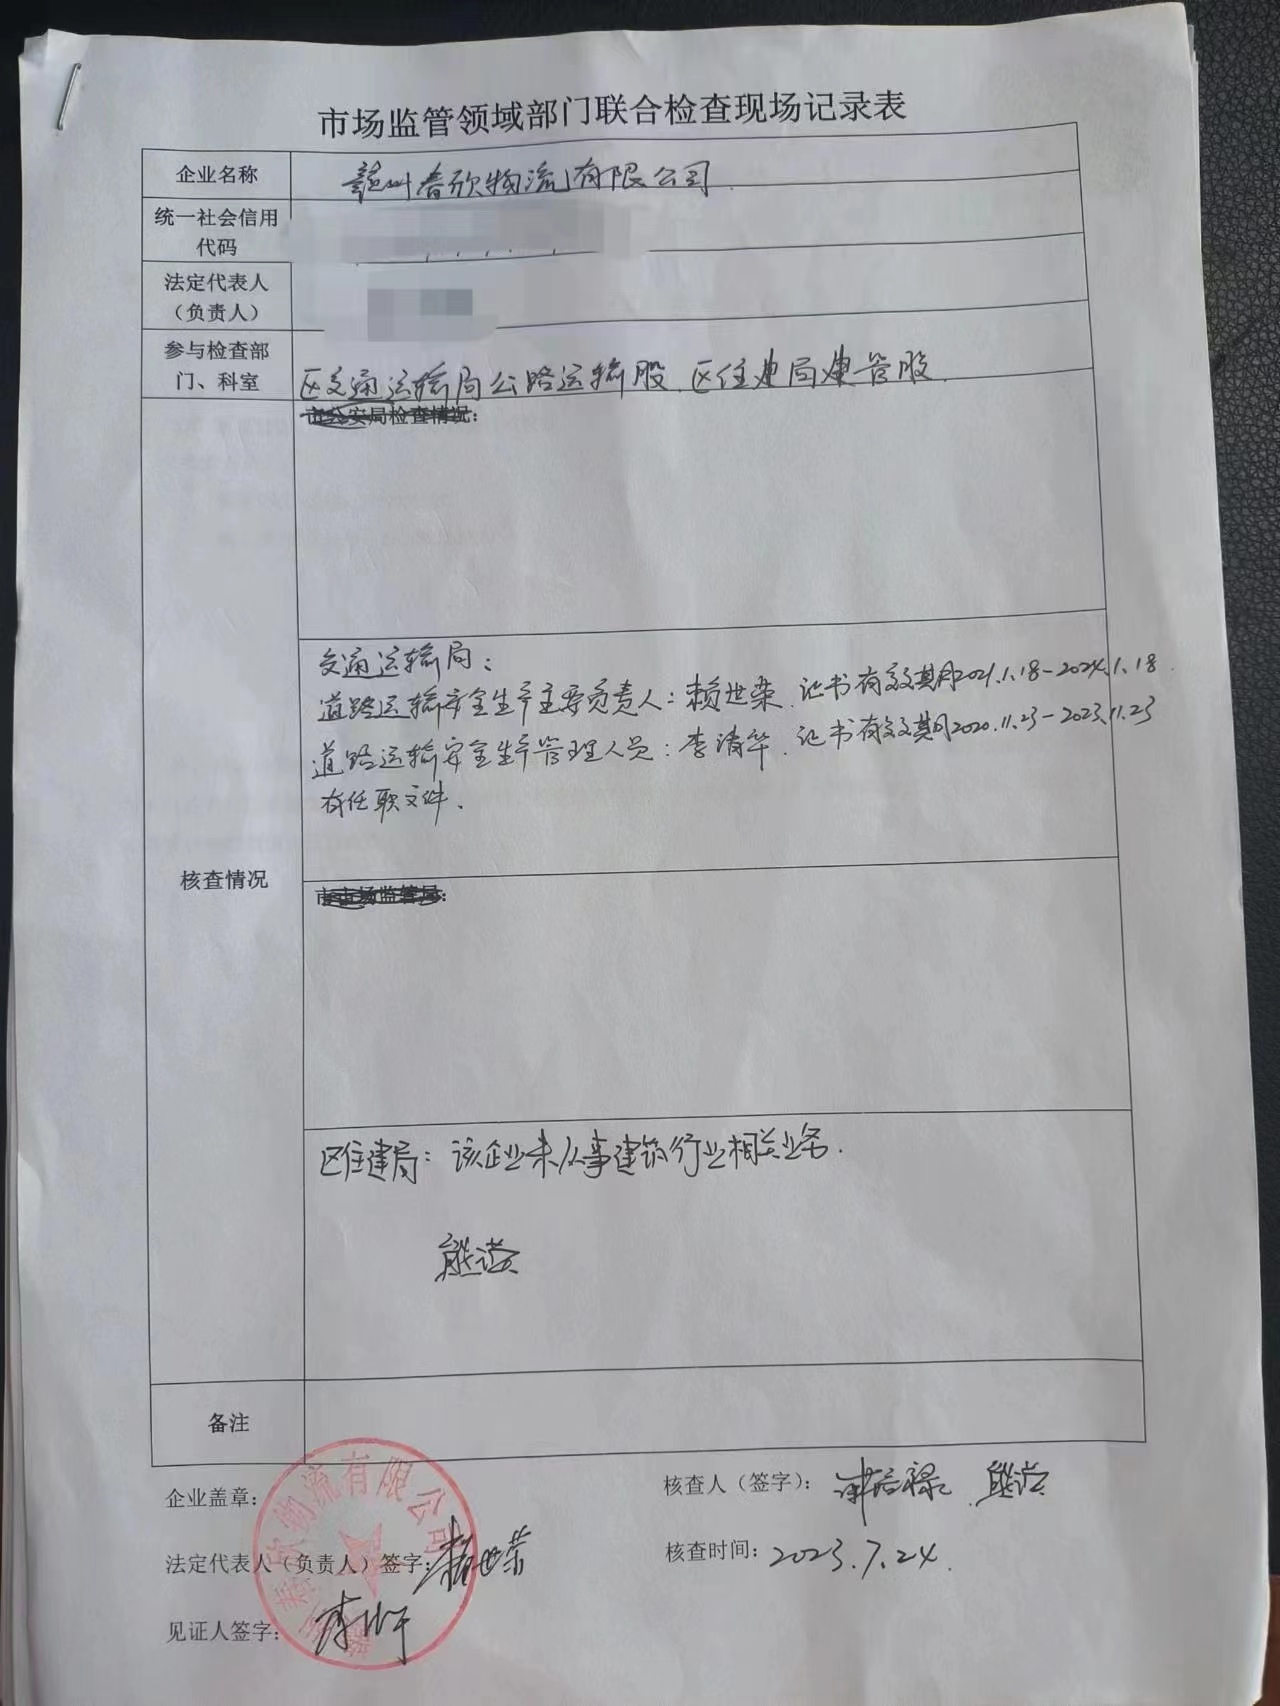 市场监管领域部门联合检查现场记录表
企业名称
赣州春欣物流有限公司
统一社会信用
代码
法定代表人
（负责人）
参与检查部
门、科室
区交通运输局公路运输股、区住建局建管股
市公安局检查情况：
核查情况
交通运输局：
道路运输安全生产主要负责人：赖世荣、证书有效期2021.1.18-2024.1.18.
道路运输安全生产管理人员：李清华、证书有效期2020.11.23-2023.11.23
有任职文件、
市市场监管局：
区住建局：该企业未从事建筑行业相关业务.
备注
企业盖章：
核查人（签字）：
法定代表人（负责人）签字：赖世荣
核查时间：2023.7.24.
见证人签字：
物流有限公司